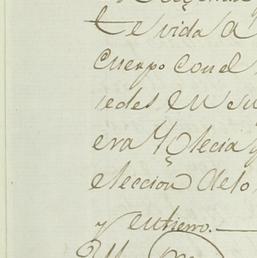 te vida a
cuerpo con el
sedes en su
era Yglecia y
eleccion de lo
y entierro.